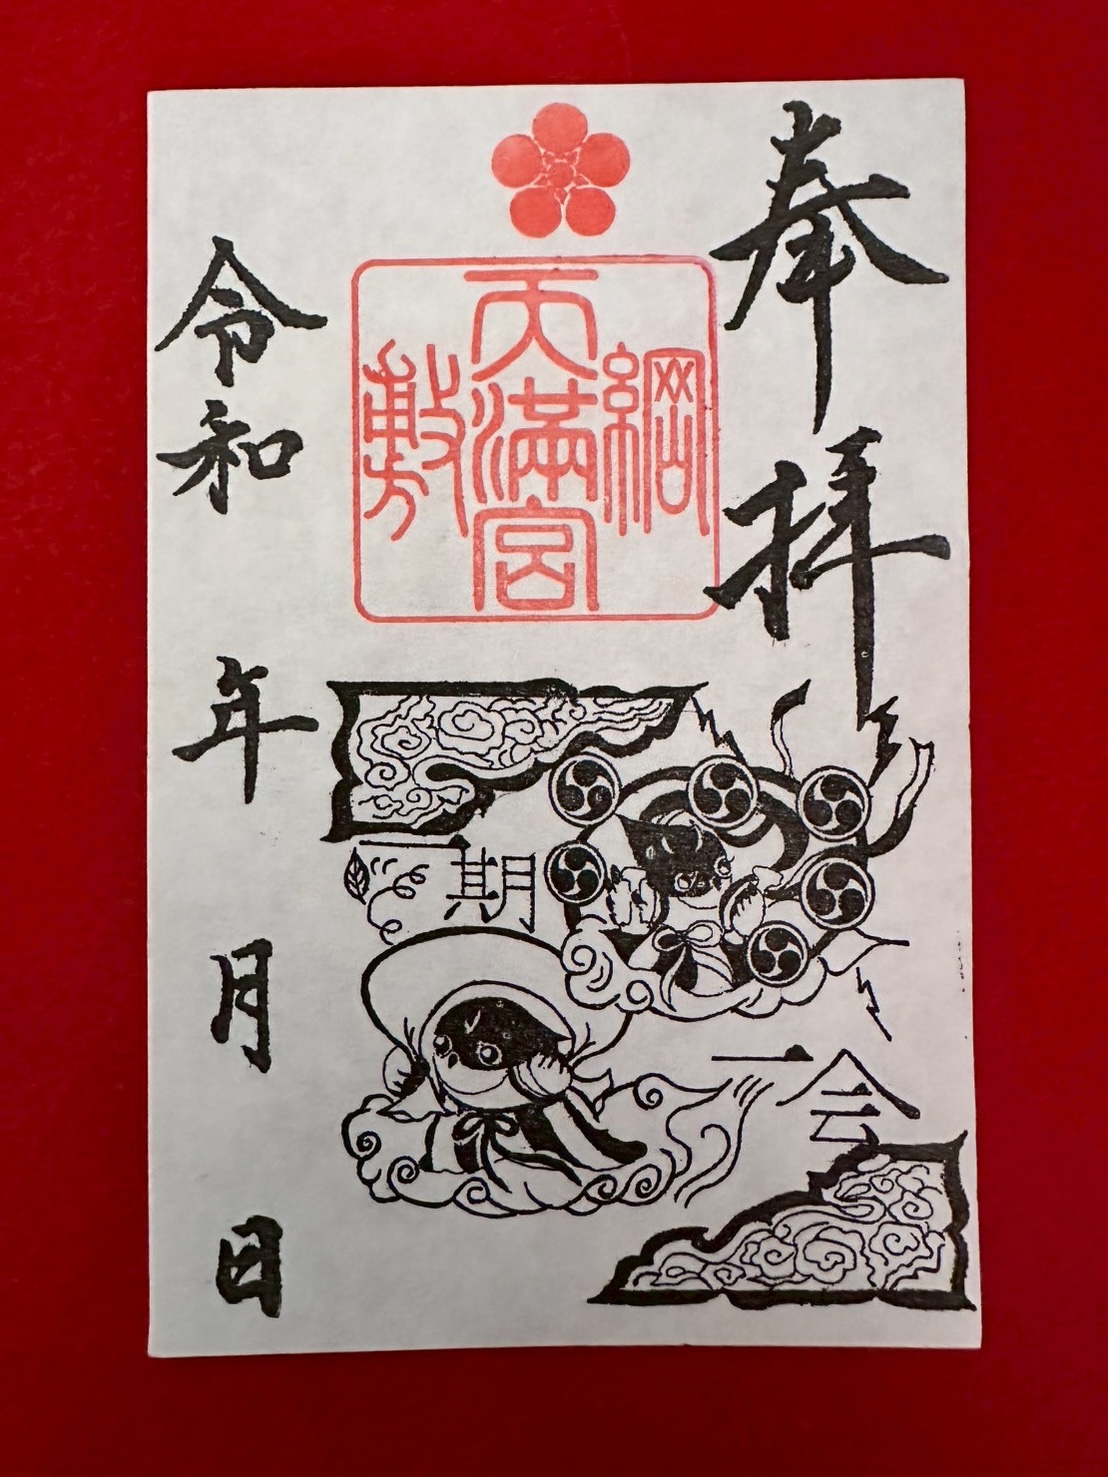 奉拝
綱敷天満宮
一期一会
令和 年 月 日